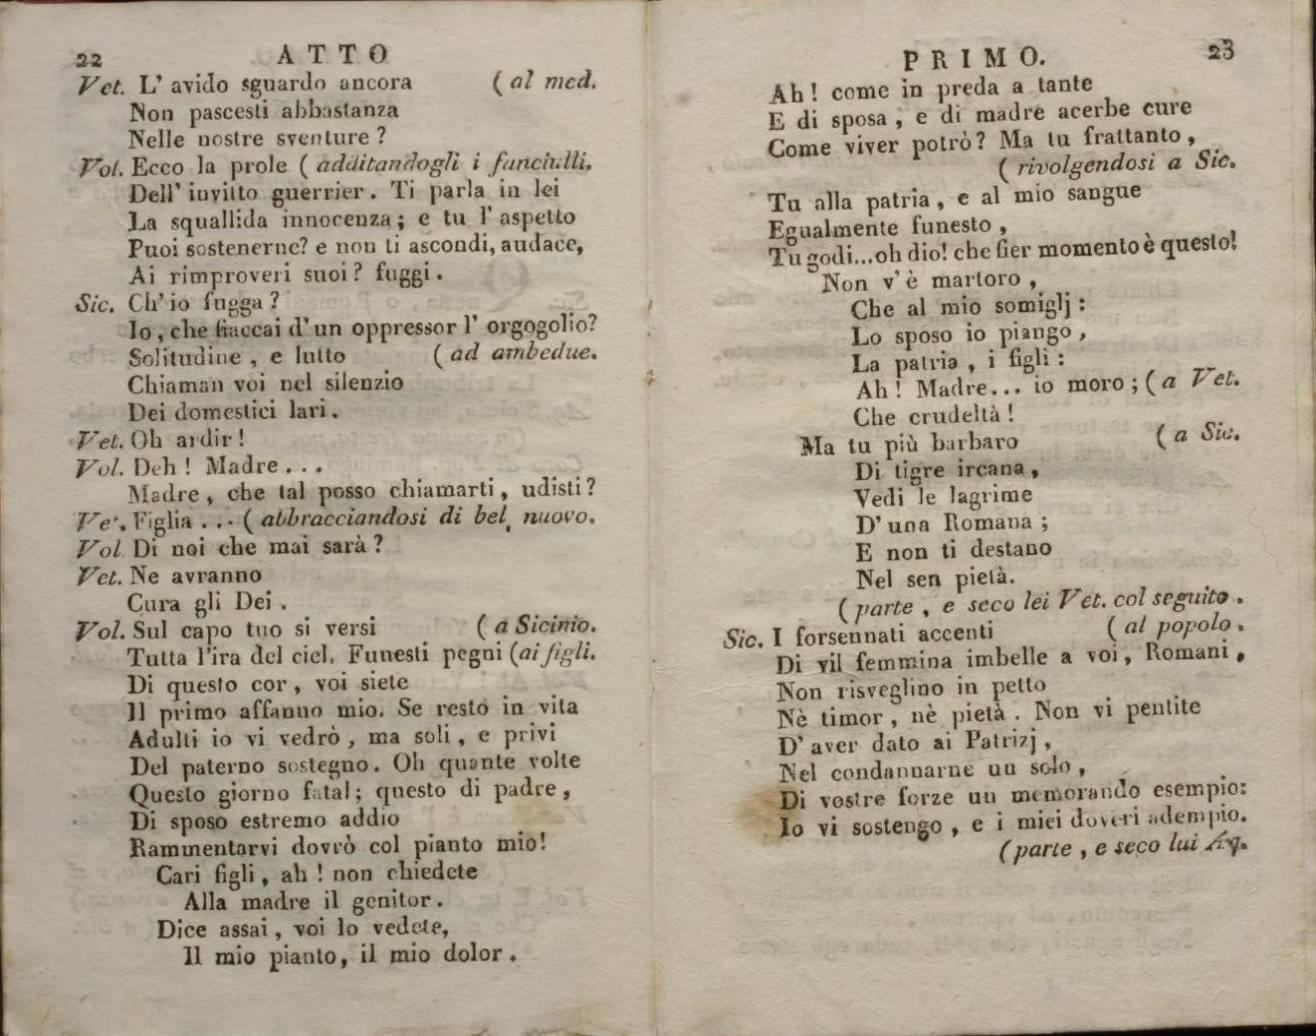 22 ATTO
Vet. L' avido sguardo ancora ( al med.
Non pascesti abbastanza
Nelle nostre sventure ?
Vol. Ecco la prole ( additandogli i fanciulli.
Dell' invitto guerrier. Ti parla in lei
La squallida innocenza; e tu l' aspetto
Puoi sostenerne? e non ti ascondi, audace,
Ai rimproveri suoi? fuggi.
Sic. Ch' io fugga ?
Io, che fiaccai d' un oppressor l' orgogolio?
Solitudine , e lutto ( ad ambedue.
Chiaman voi nel silenzio
Dei domestici lari.
Vet. Oh ardir!
Vol. Deh! Madre...
Madre, che tal posso chiamarti, udisti?
Vet. Figlia ... ( abbracciandosi di bel nuovo.
Vol. Di noi che mai sarà?
Vet. Ne avranno
Cura gli Dei .
Vol. Sul capo tuo si versi ( a Sicinio.
Tutta l'ira del ciel. Funesti pegni (ai figli.
Di questo cor, voi siete
Il primo affanno mio. Se resto in vita
Adulti io vi vedrò, ma soli, e privi
Del paterno sostegno. Oh quante volte
Questo giorno fatal; questo di padre,
Di sposo estremo addio
Rammentarvi dovrò col pianto mio!
Cari figli, ah! non chiedete
Alla madre il genitor.
Dice assai, voi lo vedete,
Il mio pianto, il mio dolor.
PRIMO. 23
Ah! come in preda a tante
E di sposa, e di madre acerbe cure
Come viver potrò? Ma tu frattanto,
( rivolgendosi a Sic.
Tu alla patria, e al mio sangue
Egualmente funesto,
Tu godi...oh dio! che fier momento è questo!
Non v' è martoro,
Che al mio somiglj:
Lo sposo io piango,
La patria, i figli:
Ah! Madre... io moro; ( a Vet.
Che crudeltà!
Ma tu più barbaro ( a Sic.
Di tigre ircana,
Vedi le lagrime
D' una Romana;
E non ti destano
Nel sen pietà.
( parte, e seco lei Vet. col seguito.
Sic. I forsennati accenti ( al popolo.
Di vil femmina imbelle a voi, Romani,
Non risveglino in petto
Nè timor, nè pietà. Non vi pentite
D' aver dato ai Patrizj,
Nel condannarne un solo,
Di vostre forze un memorando esempio:
Io vi sostengo, e i miei doveri adempio.
(parte, e seco lui Aq.